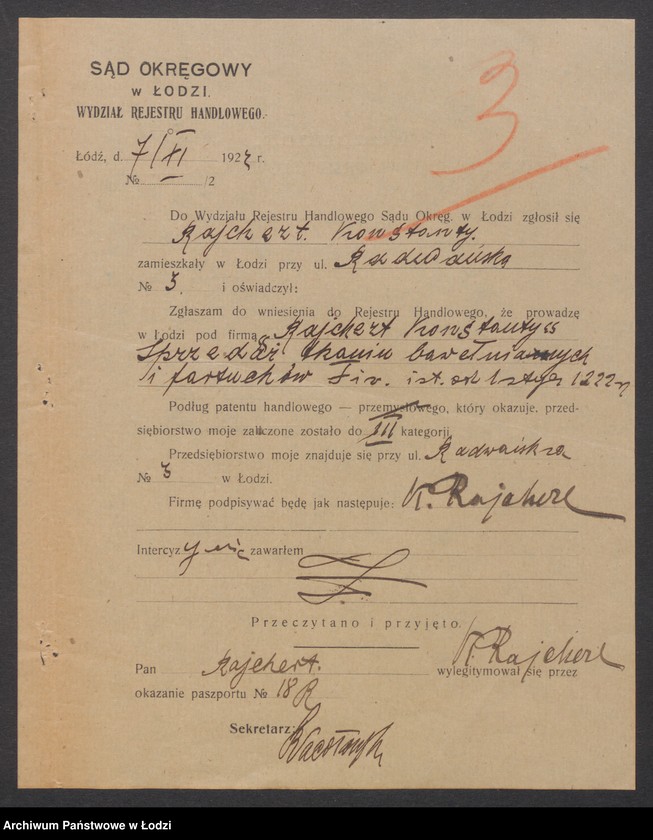 SĄD OKRĘGOWY
w ŁODZI.
WYDZIAŁ REJESTRU HANDLOWEGO.
3
Łódź, d. 7/XI 192 r.
№ — /2
Do Wydziału Rejestru Handlowego Sądu Okręg. w Łodzi zgłosił się
Rajchert Konstanty.
zamieszkały w Łodzi przy ul. Radwańska
№ 3. i oświadczył:
Zgłaszam do wniesienia do Rejestru Handlowego, że prowadzę
w Łodzi pod firmą Rajchert Konstanty
Sprzedaż tkanin bawełnianych
i fartuchów ist. od 1
Podług patentu handlowego — przemysłowego, który okazuje, przed-
siębiorstwo moje zaliczone zostało do III kategorji.
Przedsiębiorstwo moje znajduje się przy ul. Radwańska
№ 3 w Łodzi.
Firmę podpisywać będę jak następuje: K. Rajchert
Intercyzy nie zawarłem
Przeczytano i przyjęto.
K. Rajchert
Pan Rajchert. wylegitymował się przez
okazanie paszportu № 18
Sekretarz:
Archiwum Państwowe w Łodzi